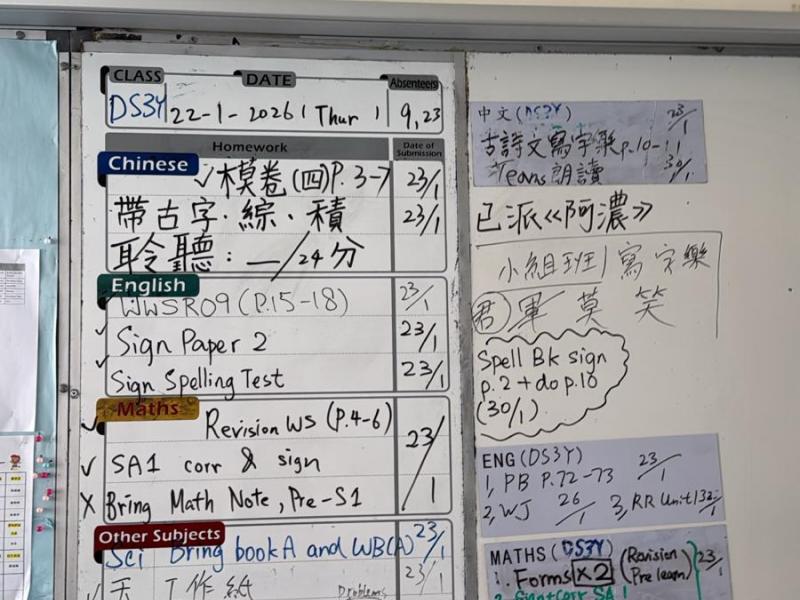 CLASS DATE Absentees
DS3Y 22-1-2026 (Thur) 9,23
Homework Date of Submission
Chinese
✓模卷(四)P.3-7 23/1
帶古字·綜·積 23/1
聆聽:__/24分
English
WWSR09 (P.15-18) 23/1
✓ Sign Paper 2 23/1
✓ Sign Spelling Test 23/1
Maths
✓ Revision WS (P.4-6) 23/1
✓ SA1 corr & sign
X Bring Math Note, Pre-S1
Other Subjects
Sci Bring book A and WB(A) 23/1
✓ 工作紙 Problems 23/1
中文(DS3Y) 23/1
古詩文寫字樂p.10-11
Teams朗讀 30/1
已派《阿濃》
小組班/寫字樂
君 軍 莫 笑
Spell Bk sign
p.2 + do p.10
(30/1)
ENG (DS3Y) 23/1
1, PB P.72-73
2, WJ 26/1 3, RR Unit
MATHS (DS3Y) 23/1
1. Forms x2 (Revision Pre learn)